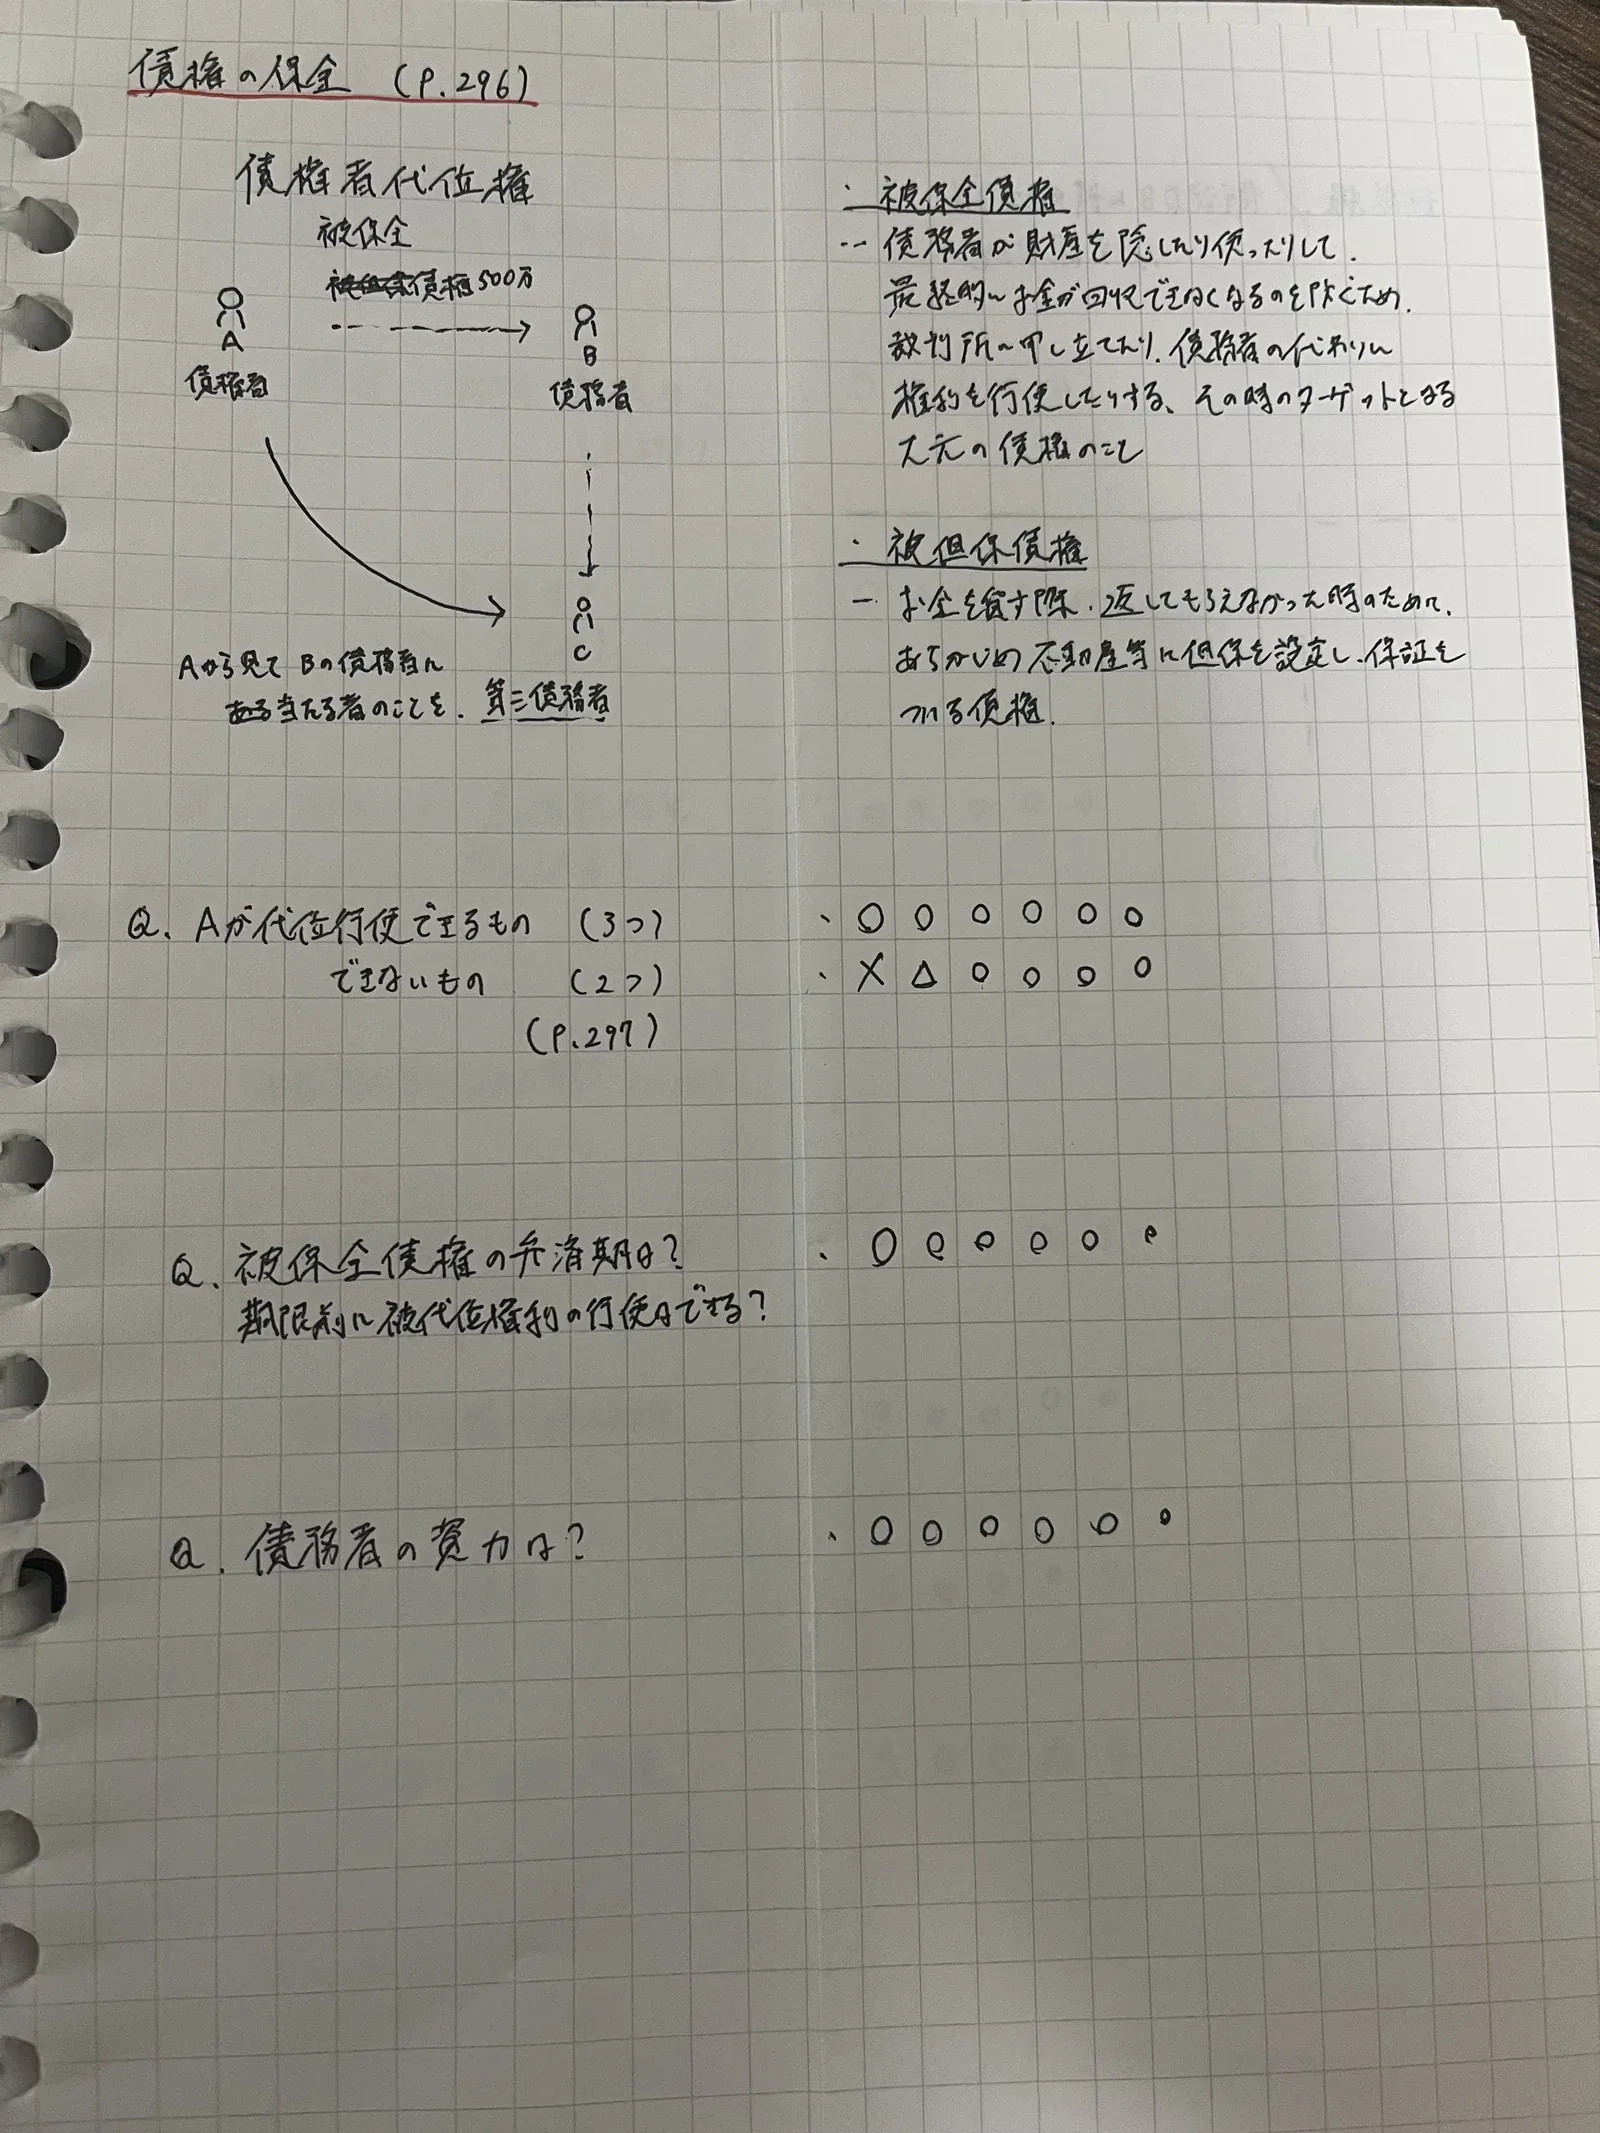 債権の保全 (P.296)
債権者代位権
被保全
債権500万
A
債権者
B
債務者
C
Aから見て Bの債務者に
当たる者のことを、第三債務者
・被保全債権
… 債務者が財産を隠したり使ったりして、
最終的にお金が回収できなくなるのを防ぐため、
裁判所へ申し立てたり、債務者の代わりに
権利を行使したりする、その時のターゲットとなる
大元の債権のこと
・被担保債権
… お金を貸す際、返してもらえなかった時のために、
あらかじめ不動産等に担保を設定し、保証を
つける債権.
Q. Aが代位行使できるもの (3つ)
できないもの (2つ)
(P.297)
・○○○○○○
・×△○○○○
Q. 被保全債権の弁済期は?
期限前に被代位権利の行使はできる?
・○○○○○○
Q. 債務者の資力は?
・○○○○○○